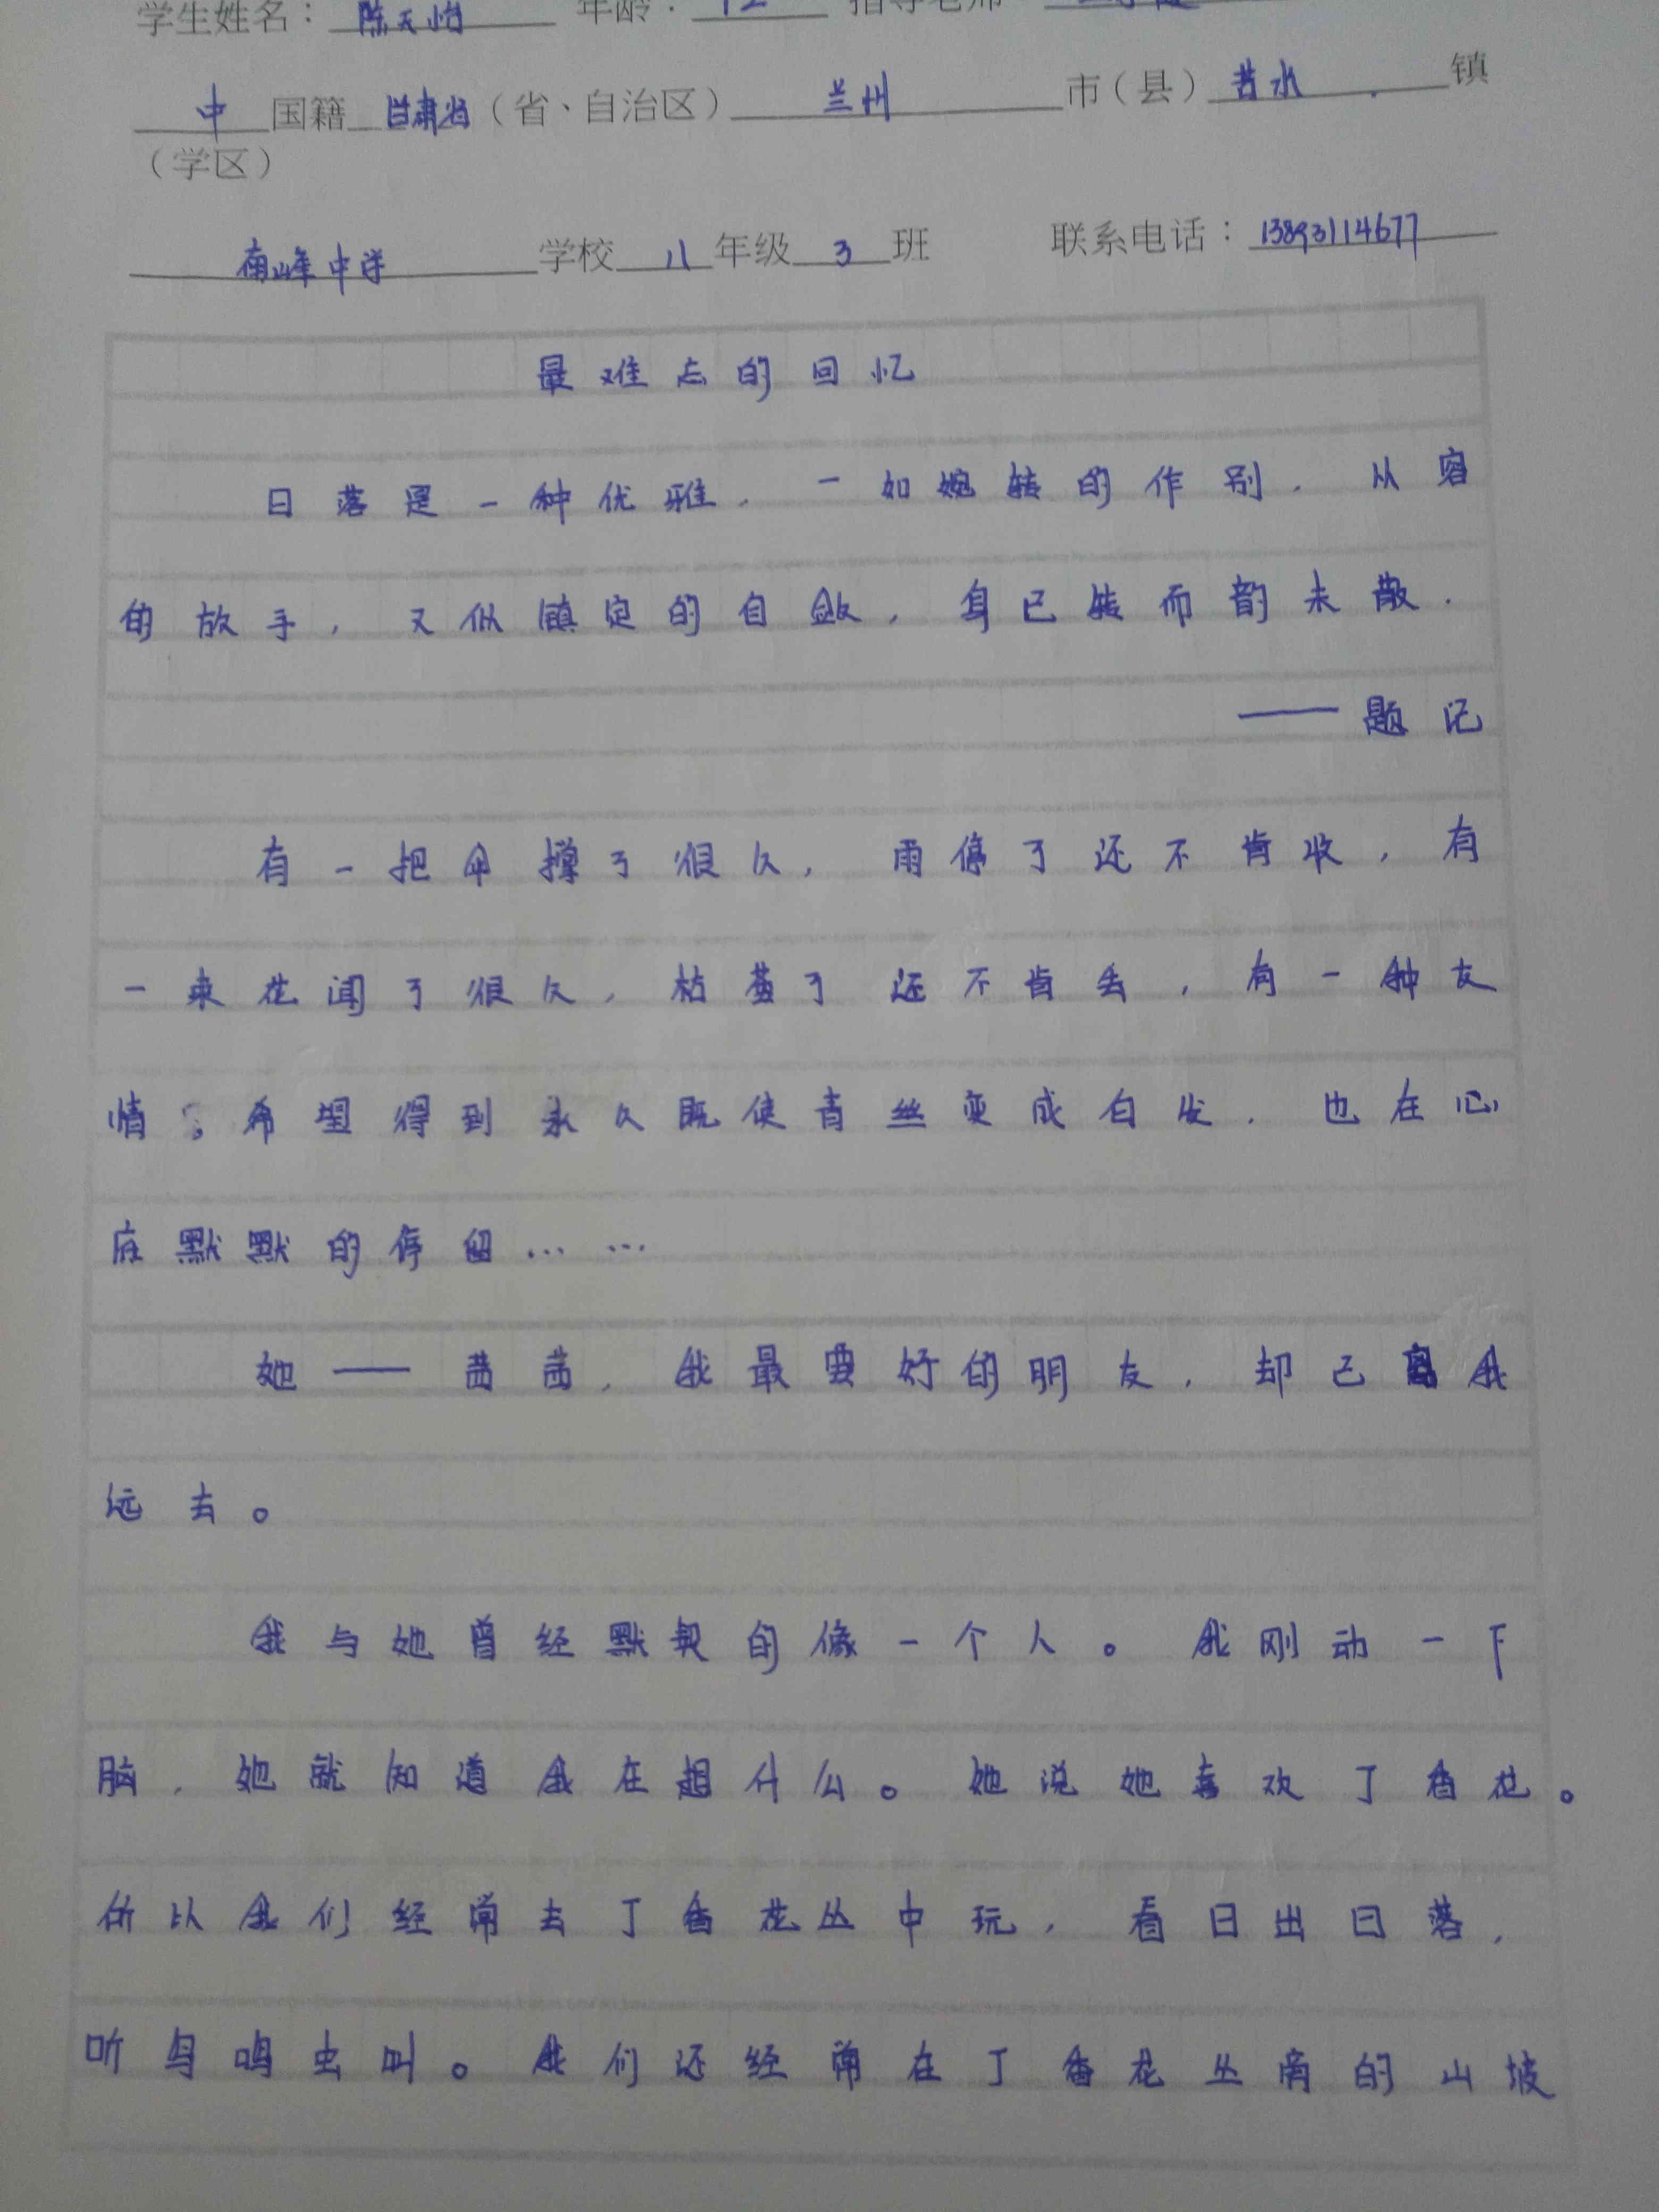 学生姓名：陈天怡 年龄： 指导老师
中国籍 甘肃省（省、自治区） 兰州 市（县） 苦水 镇
（学区）
南峰中学 学校 八 年级 3 班 联系电话：13893114677
最难忘的回忆
日落是一种优雅，一如婉转的作别，从容
的放手，又似镇定的自敛，身已转而韵未散．
——题记
有一把伞撑了很久，雨停了还不肯收，有
一束花闻了很久，枯萎了还不肯丢，有一种友
情，希望得到永久既使青丝变成白发，也在心
底默默的停留……
她——茜茜，我最要好的朋友，却已离我
远去。
我与她曾经默契的像一个人。我刚动一下
脑，她就知道我在想什么。她说她喜欢丁香花。
所以我们经常去丁香花丛中玩，看日出日落，
听鸟鸣虫叫。我们还经常在丁香花丛旁的山坡